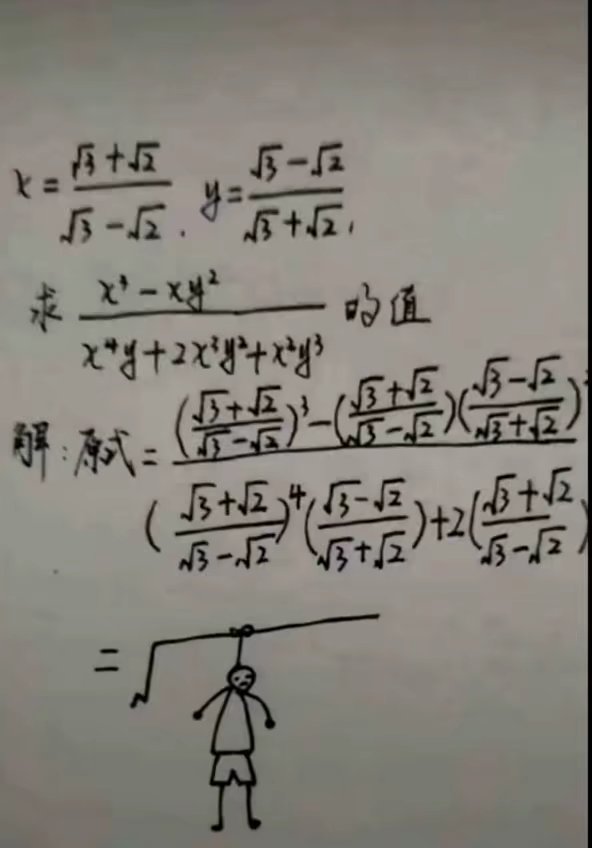 x = (√3+√2)/(√3−√2). y = (√3−√2)/(√3+√2),
求 (x³−xy²)/(x⁴y+2x³y²+x²y³) 的值
解:原式 = (((√3+√2)/(√3−√2))³−((√3+√2)/(√3−√2))((√3−√2)/(√3+√2))²)/(((√3+√2)/(√3−√2))⁴((√3−√2)/(√3+√2))+2((√3+√2)/(√3−√2))
=√